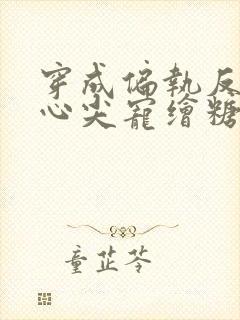 穿成偏執反
心尖寵繪糖
童芷苓